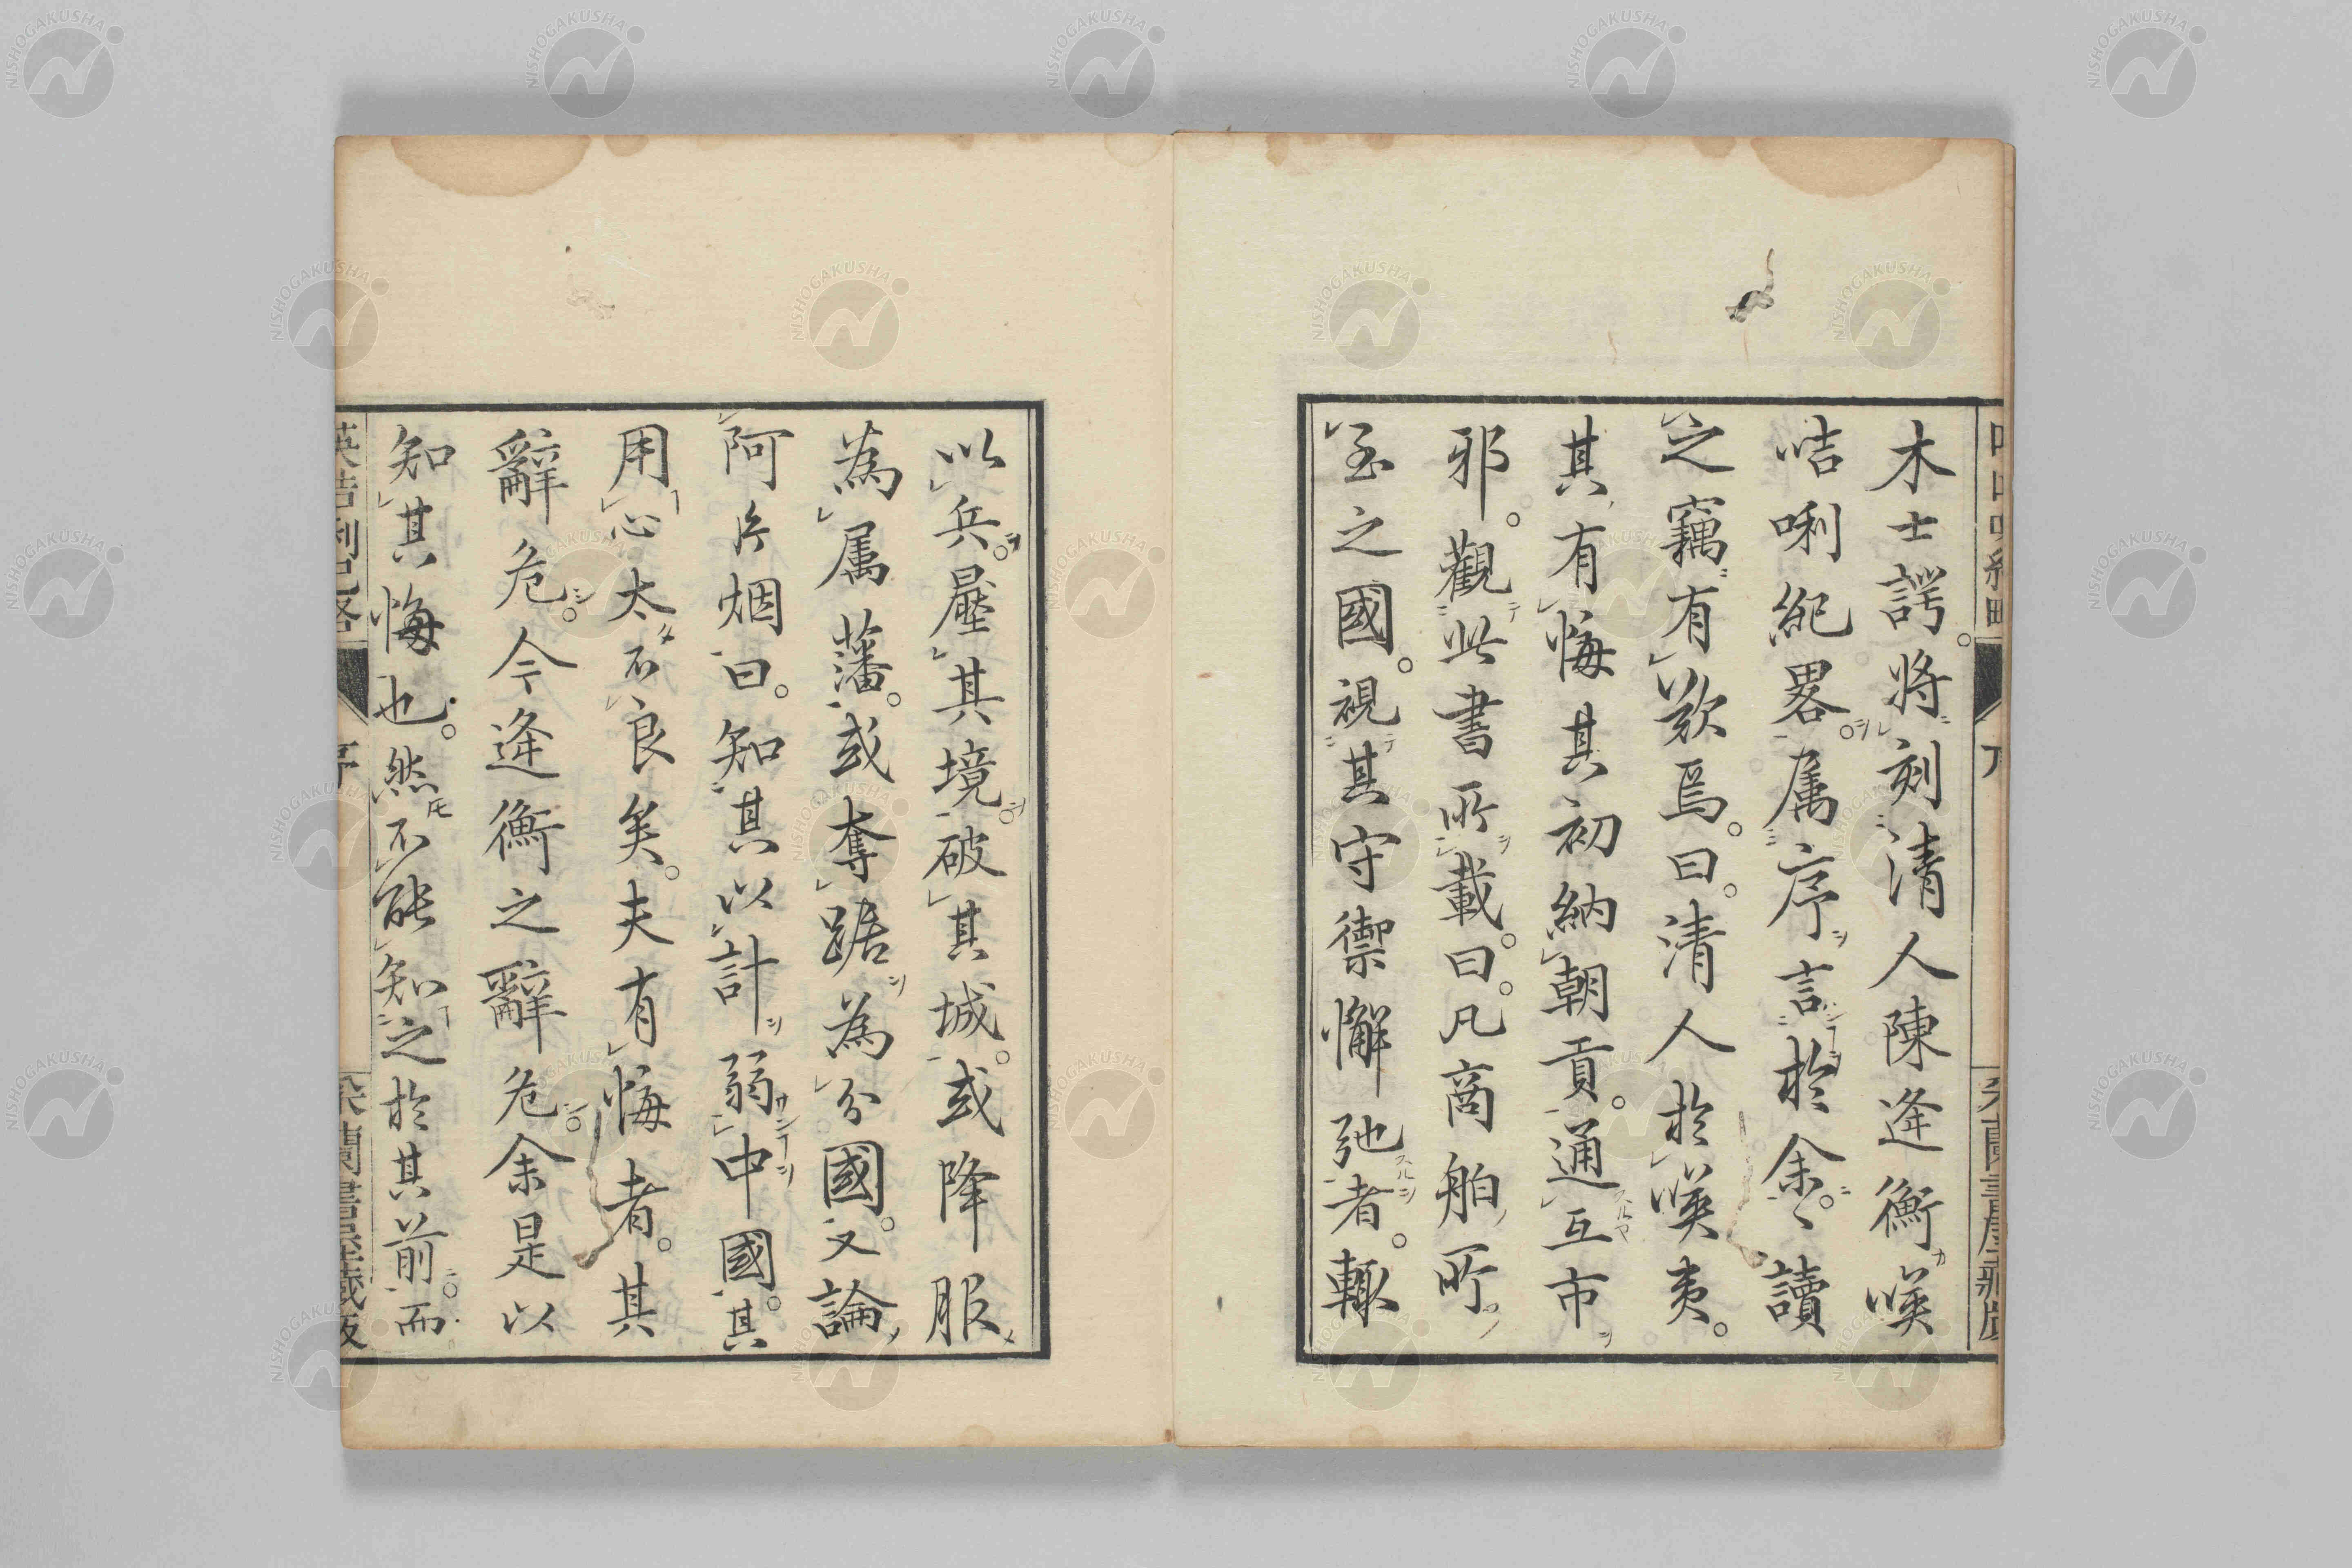 木士諤。將刻清人陳逢衡㗸
咭唎紀畧。属序言於余。〻讀
之竊有歎焉。曰。清人於㗸夷。
其有悔其初納朝貢。通互市
邪。觀此書所載。曰。凡商舶所
至之國。視其守禦懈弛者。輙
以兵壓其境。破其城。或降服
為属藩。或奪踞為分國。又論
阿片烟曰。知其以計弱中國。其
用心太不良矣。夫有悔者。其
辭危。今逢衡之辭危。余是以
知其悔也。然不能知之於其前。而
NISHOGAKUSHA